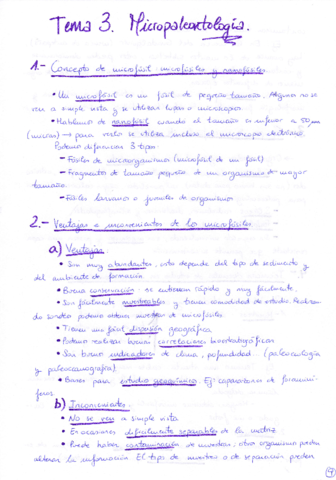 Tema 3. Micropaleontología.
1.- Concepto de microfósil microfósiles y nanofósiles
· Un microfósil es un fósil de pequeño tamaño. Algunos no se
ven a simple vista y se utilizan lupas o microscopios
· Hablamos de nanofósil cuando el tamaño es inferior a 50 µm
(micras) → para verlo se utiliza incluso el microscopio electrónico.
Podemos diferenciar 3 tipos:
- Fósiles de microorganismos (microfósil de un fósil)
- Fragmentos de tamaño pequeño de un organismo de mayor
tamaño.
- Fósiles larvarios o juveniles de organismos
2.- Ventajas e inconvenientes de los microfósiles
a) Ventajas
· Son muy abundantes, esto depende del tipo de sedimento y
del ambiente de formación
· Buena conservación: se entierran rápido y muy fácilmente.
· Son fácilmente muestreables y tienen comodidad de estudio.
de sondeos podemos obtener muestras de microfósiles.
· Tienen una fácil dispersión geográfica
· Podemos realizar buenas correlaciones bioestratigráficas
· Son buenos indicadores de clima, profundidad (paleoecología
y paleoceanografía)
· Buenos para estudio geoquímico. Ej: caparazones de foraminí-
feros
b) Inconvenientes
· No se ven a simple vista
· En ocasiones difícilmente separables de la matriz
· Puede haber contaminación de muestras, otro organismo pueden
alterar la información. El tipo de muestra o de separación pueden